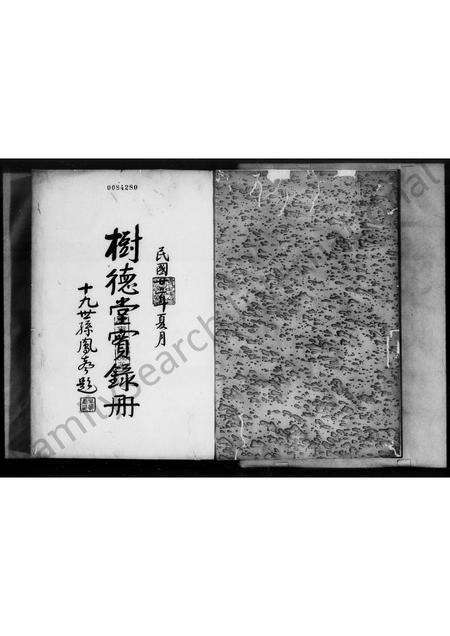 0084280
民國廿年夏月
樹德堂實錄冊
十九世孫鳳 題
familysearch